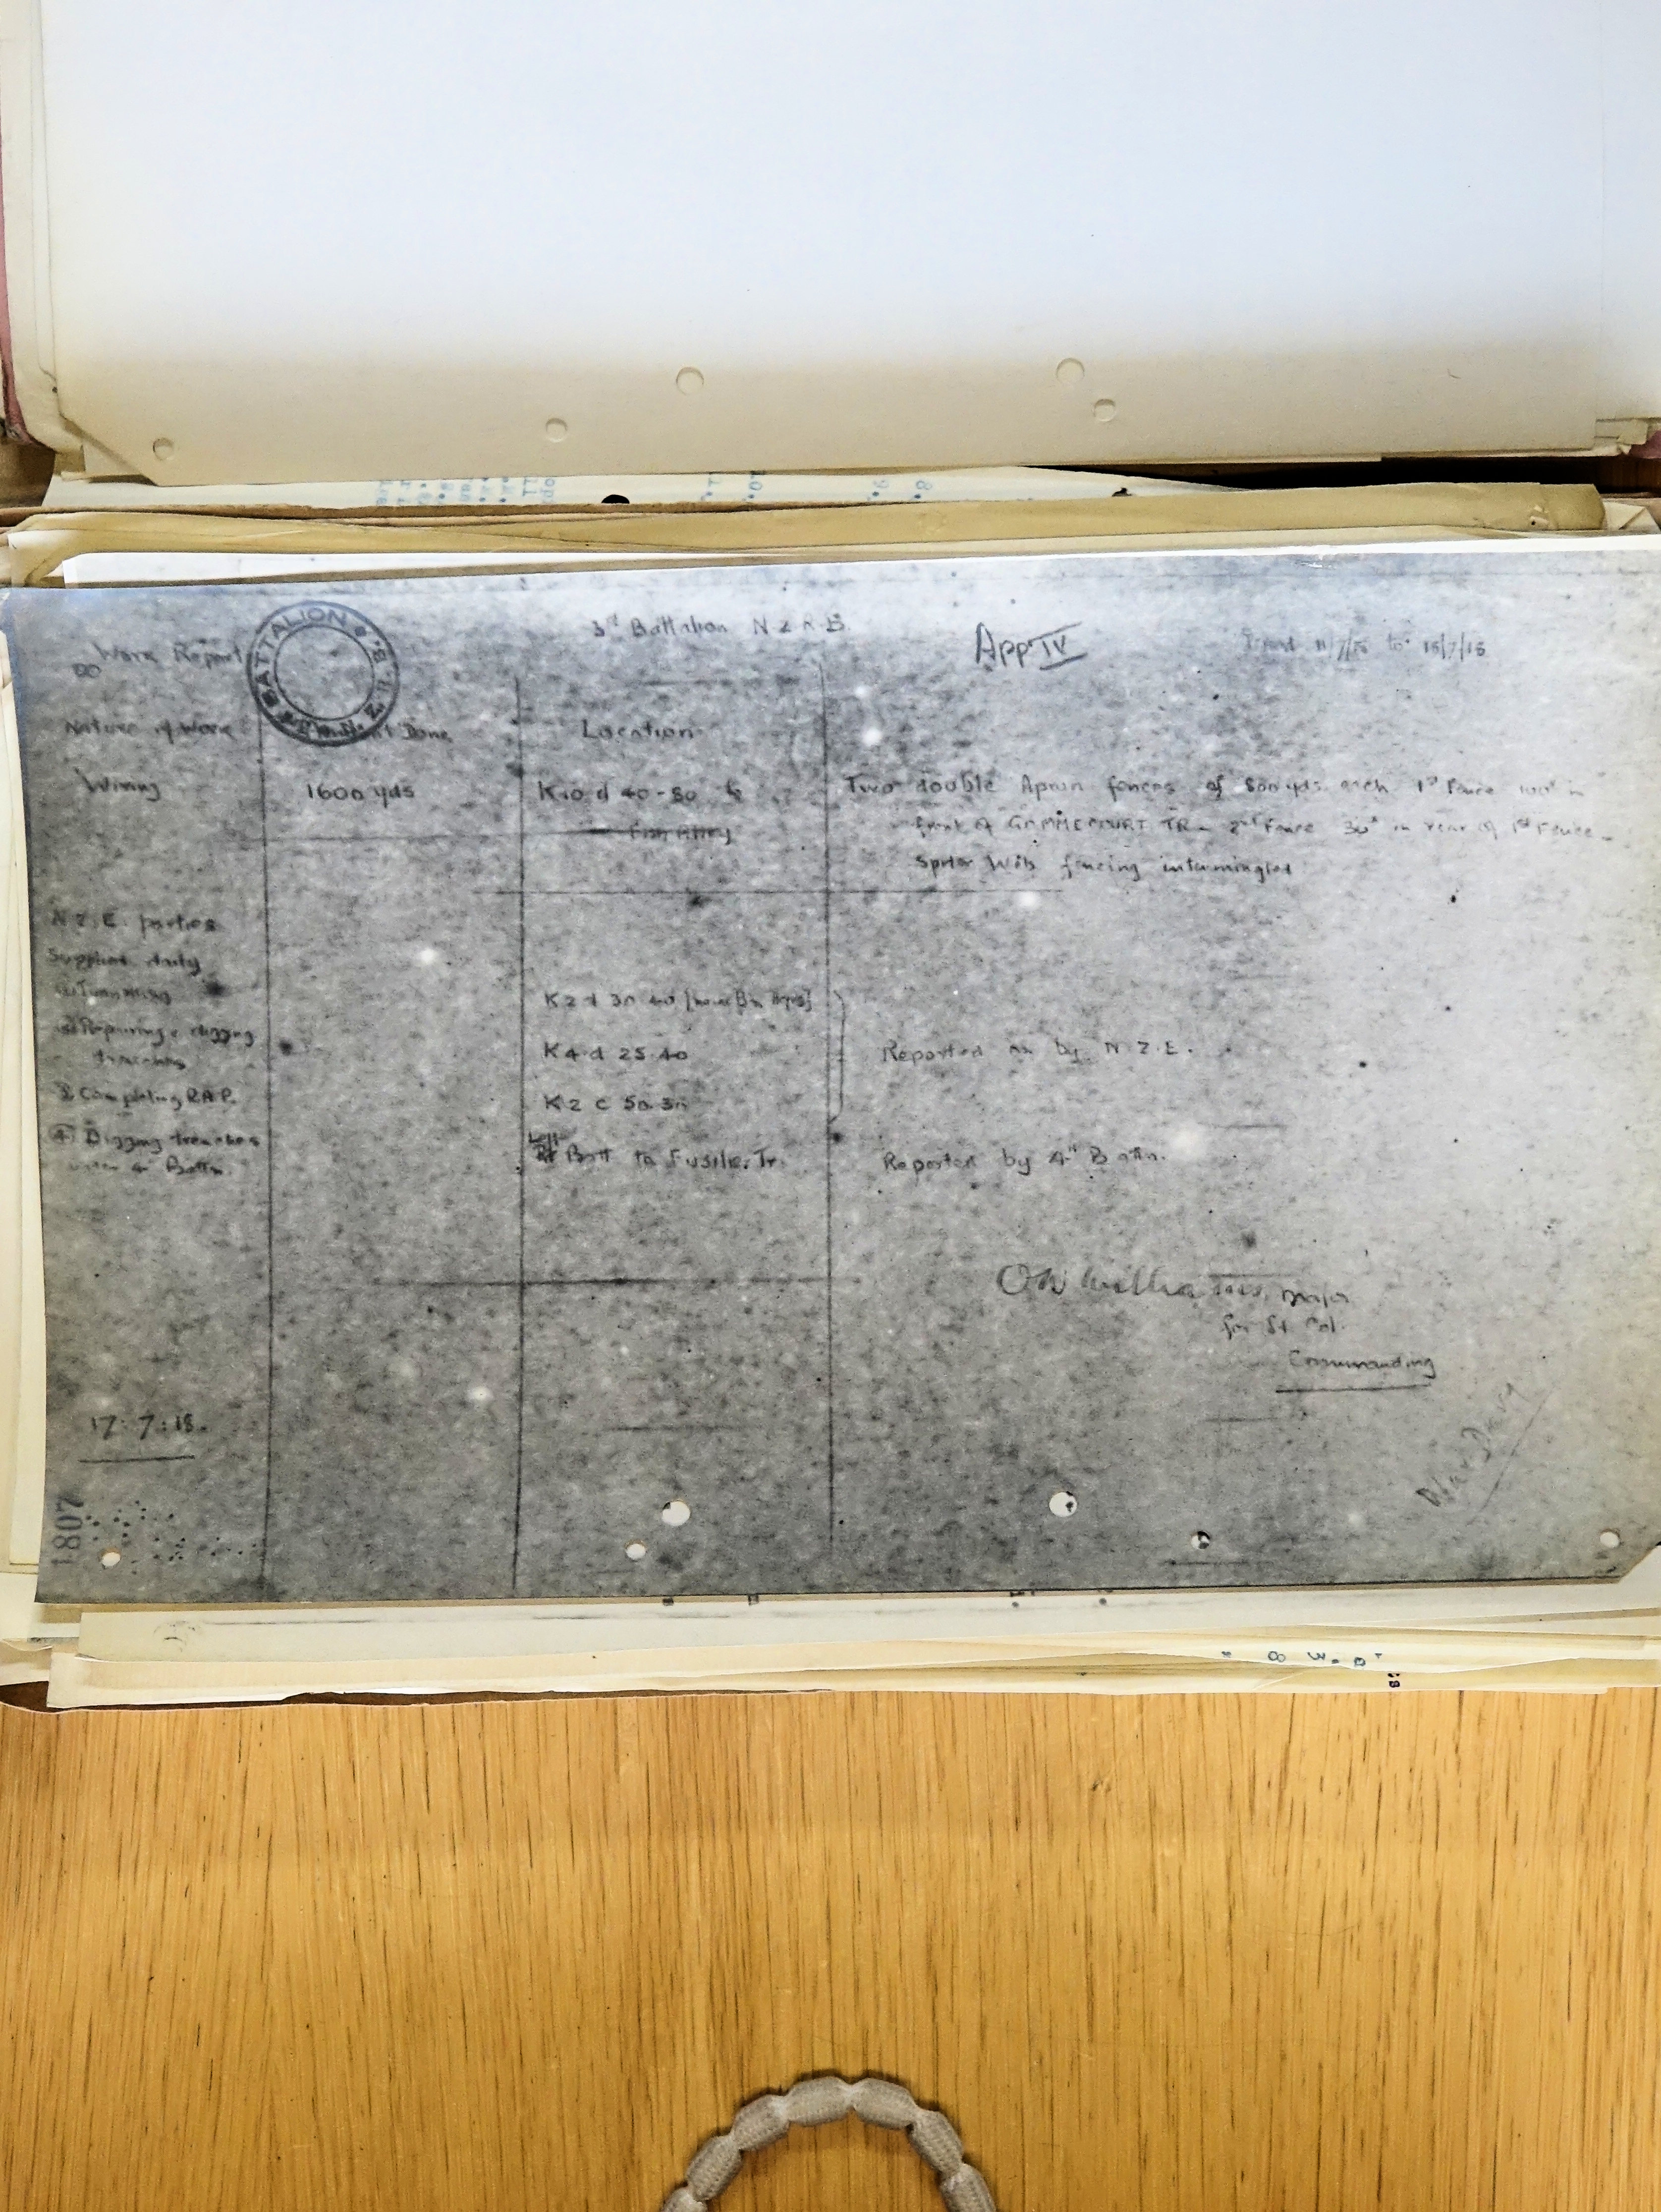 3rd Battalion N Z R B.
App IV
Work Report
11/7/18 to 15/7/18
BATTALION N. Z. R. B.
Nature of Work
Done
Location
Wiring
1600 yds
K10 d 40-80 to
Fish Alley
Two double Apron fences of 800 yds each 1st Fence 100x in
front of GOMMECOURT TR - 2nd Fence 30x in rear of 1st Fence -
fencing intermingled
N.Z.E. parties
Supplied daily
(1) Tunnelling
K2 d 30 40
(2) Repairing & digging
trenches
K4 d 25.40
Reported on by N.Z.E.
3 Completing R.A.P.
K2 C 50.30
(4) Digging trenches
under 4th Battn.
Left
Batt to Fusilier Tr.
Reported by 4th Battn.
Major
for Lt Col.
Commanding
17.7.18.
War Diary
1807